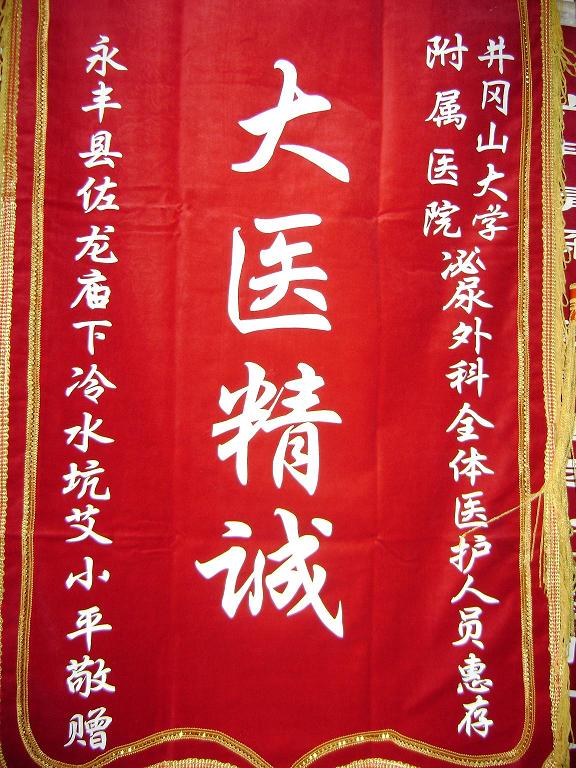 井冈山大学
附属医院
泌尿外科全体医护人员惠存
大医精诚
永丰县佐龙庙下冷水坑艾小平敬赠